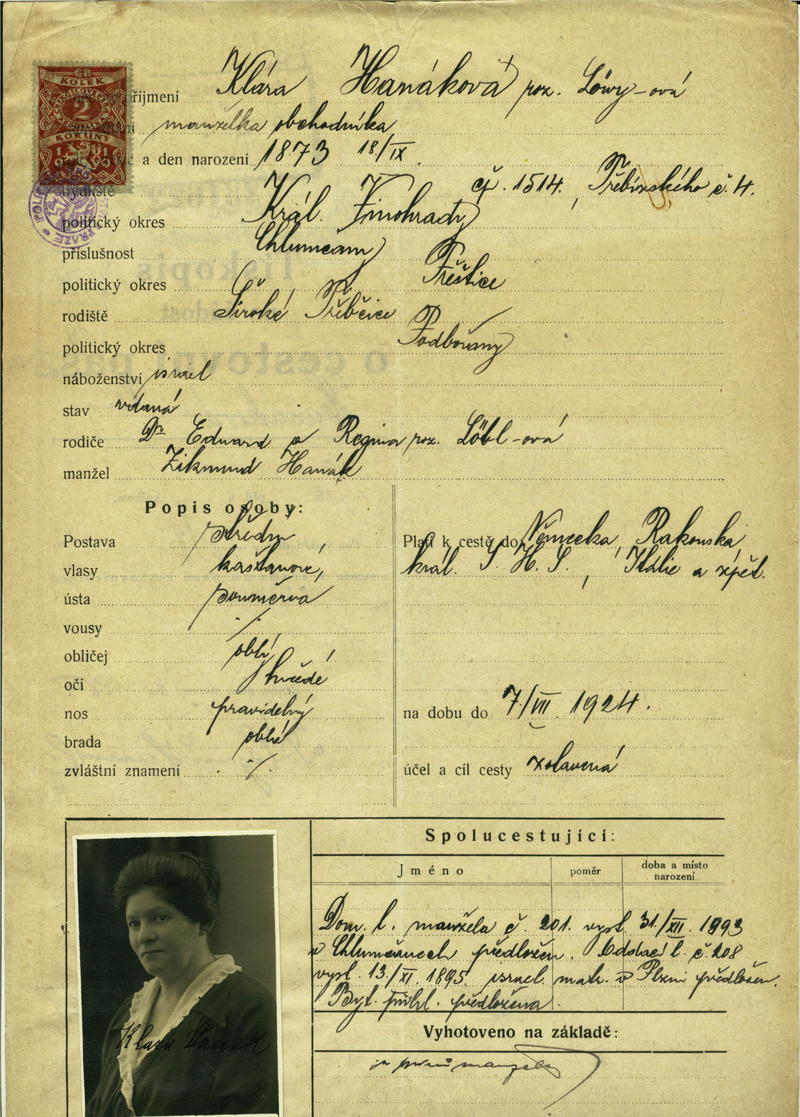 KOLEK
2
KORUNY
příjmení Klára Hanáková roz. Löwy-ová
manželka obchodníka
a den narození 1873 18/IX.
bydliště čp. 1514. Třebízského č. 4.
politický okres Král. Vinohrady
příslušnost Chlumčany
politický okres Přeštice
rodiště Široké Třebčice
politický okres Podbořany
náboženství israel
stav vdaná
rodiče Dr Eduard a Regina roz. Löbl-ová
manžel Zikmund Hanák
Popis osoby:
Postava střední
vlasy kaštanové,
ústa souměrná
vousy ./.
obličej oblý
oči hnědé
nos pravidelný
brada oblá
zvláštní znamení ./.
Plán k cestě do Německa, Rakouska,
král. S. H. S., Itálie a zpět.
na dobu do 7/VII. 1924.
účel a cíl cesty zotavená
Spolucestující:
Jméno poměr doba a místo narození
Dom. l. manžela č. 201. vyst. 31/XII. 1893
v Chlumčanech předložen. Oddací l. č. 208
vyst. 13/XI. 1895 israel. matr. v Plzni předložen.
Byt. přihl. předložena.
Vyhotoveno na základě:
Klara Hanak